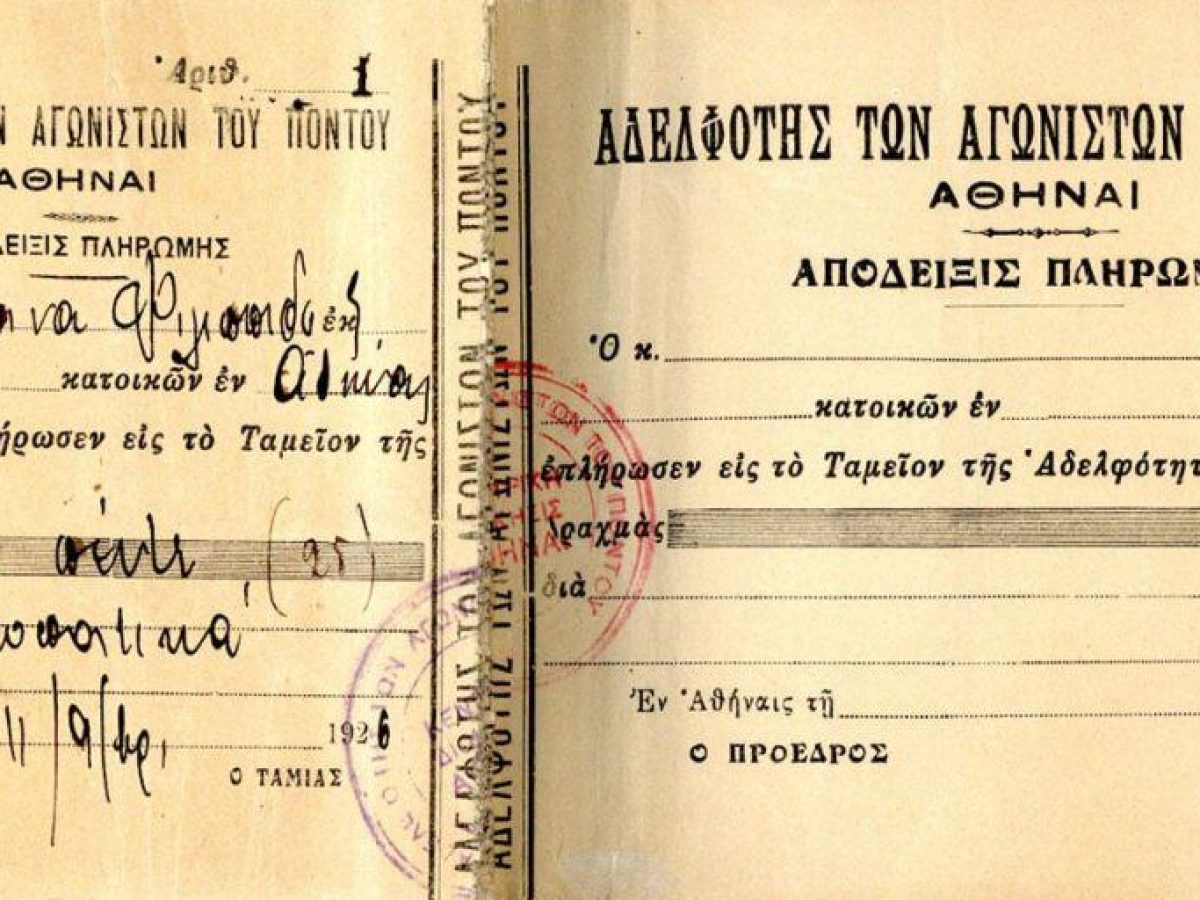 Ἀριθ. 1
Ν ΑΓΩΝΙΣΤΩΝ ΤΟΥ ΠΟΝΤΟΥ
ΑΘΗΝΑΙ
ΔΕΙΞΙΣ ΠΛΗΡΩΜΗΣ
ἐκ
κατοικῶν ἐν Ἀθήνας
ήρωσεν εἰς τὸ Ταμεῖον τῆς
πέντε (25)
11/9/βρ, 1926
Ο ΤΑΜΙΑΣ
ΑΔΕΛΦΟΤΗΣ ΤΩΝ ΑΓΩΝΙΣΤΩΝ ΤΟΥ ΠΟΝΤΟΥ
ΑΔΕΛΦΟΤΗΣ ΤΩΝ ΑΓΩΝΙΣΤΩΝ ΤΟΥ ΠΟΝΤΟΥ
ΑΔΕΛΦΟΤΗΣ ΤΩΝ ΑΓΩΝΙΣΤΩΝ
ΑΘΗΝΑΙ
ΑΠΟΔΕΙΞΙΣ ΠΛΗΡΩΜ
Ὁ κ.
κατοικῶν ἐν
ἐπλήρωσεν εἰς τὸ Ταμεῖον τῆς Ἀδελφότητ
Δραχμὰς
διὰ
Ἐν Ἀθήναις τῇ
Ο ΠΡΟΕΔΡΟΣ